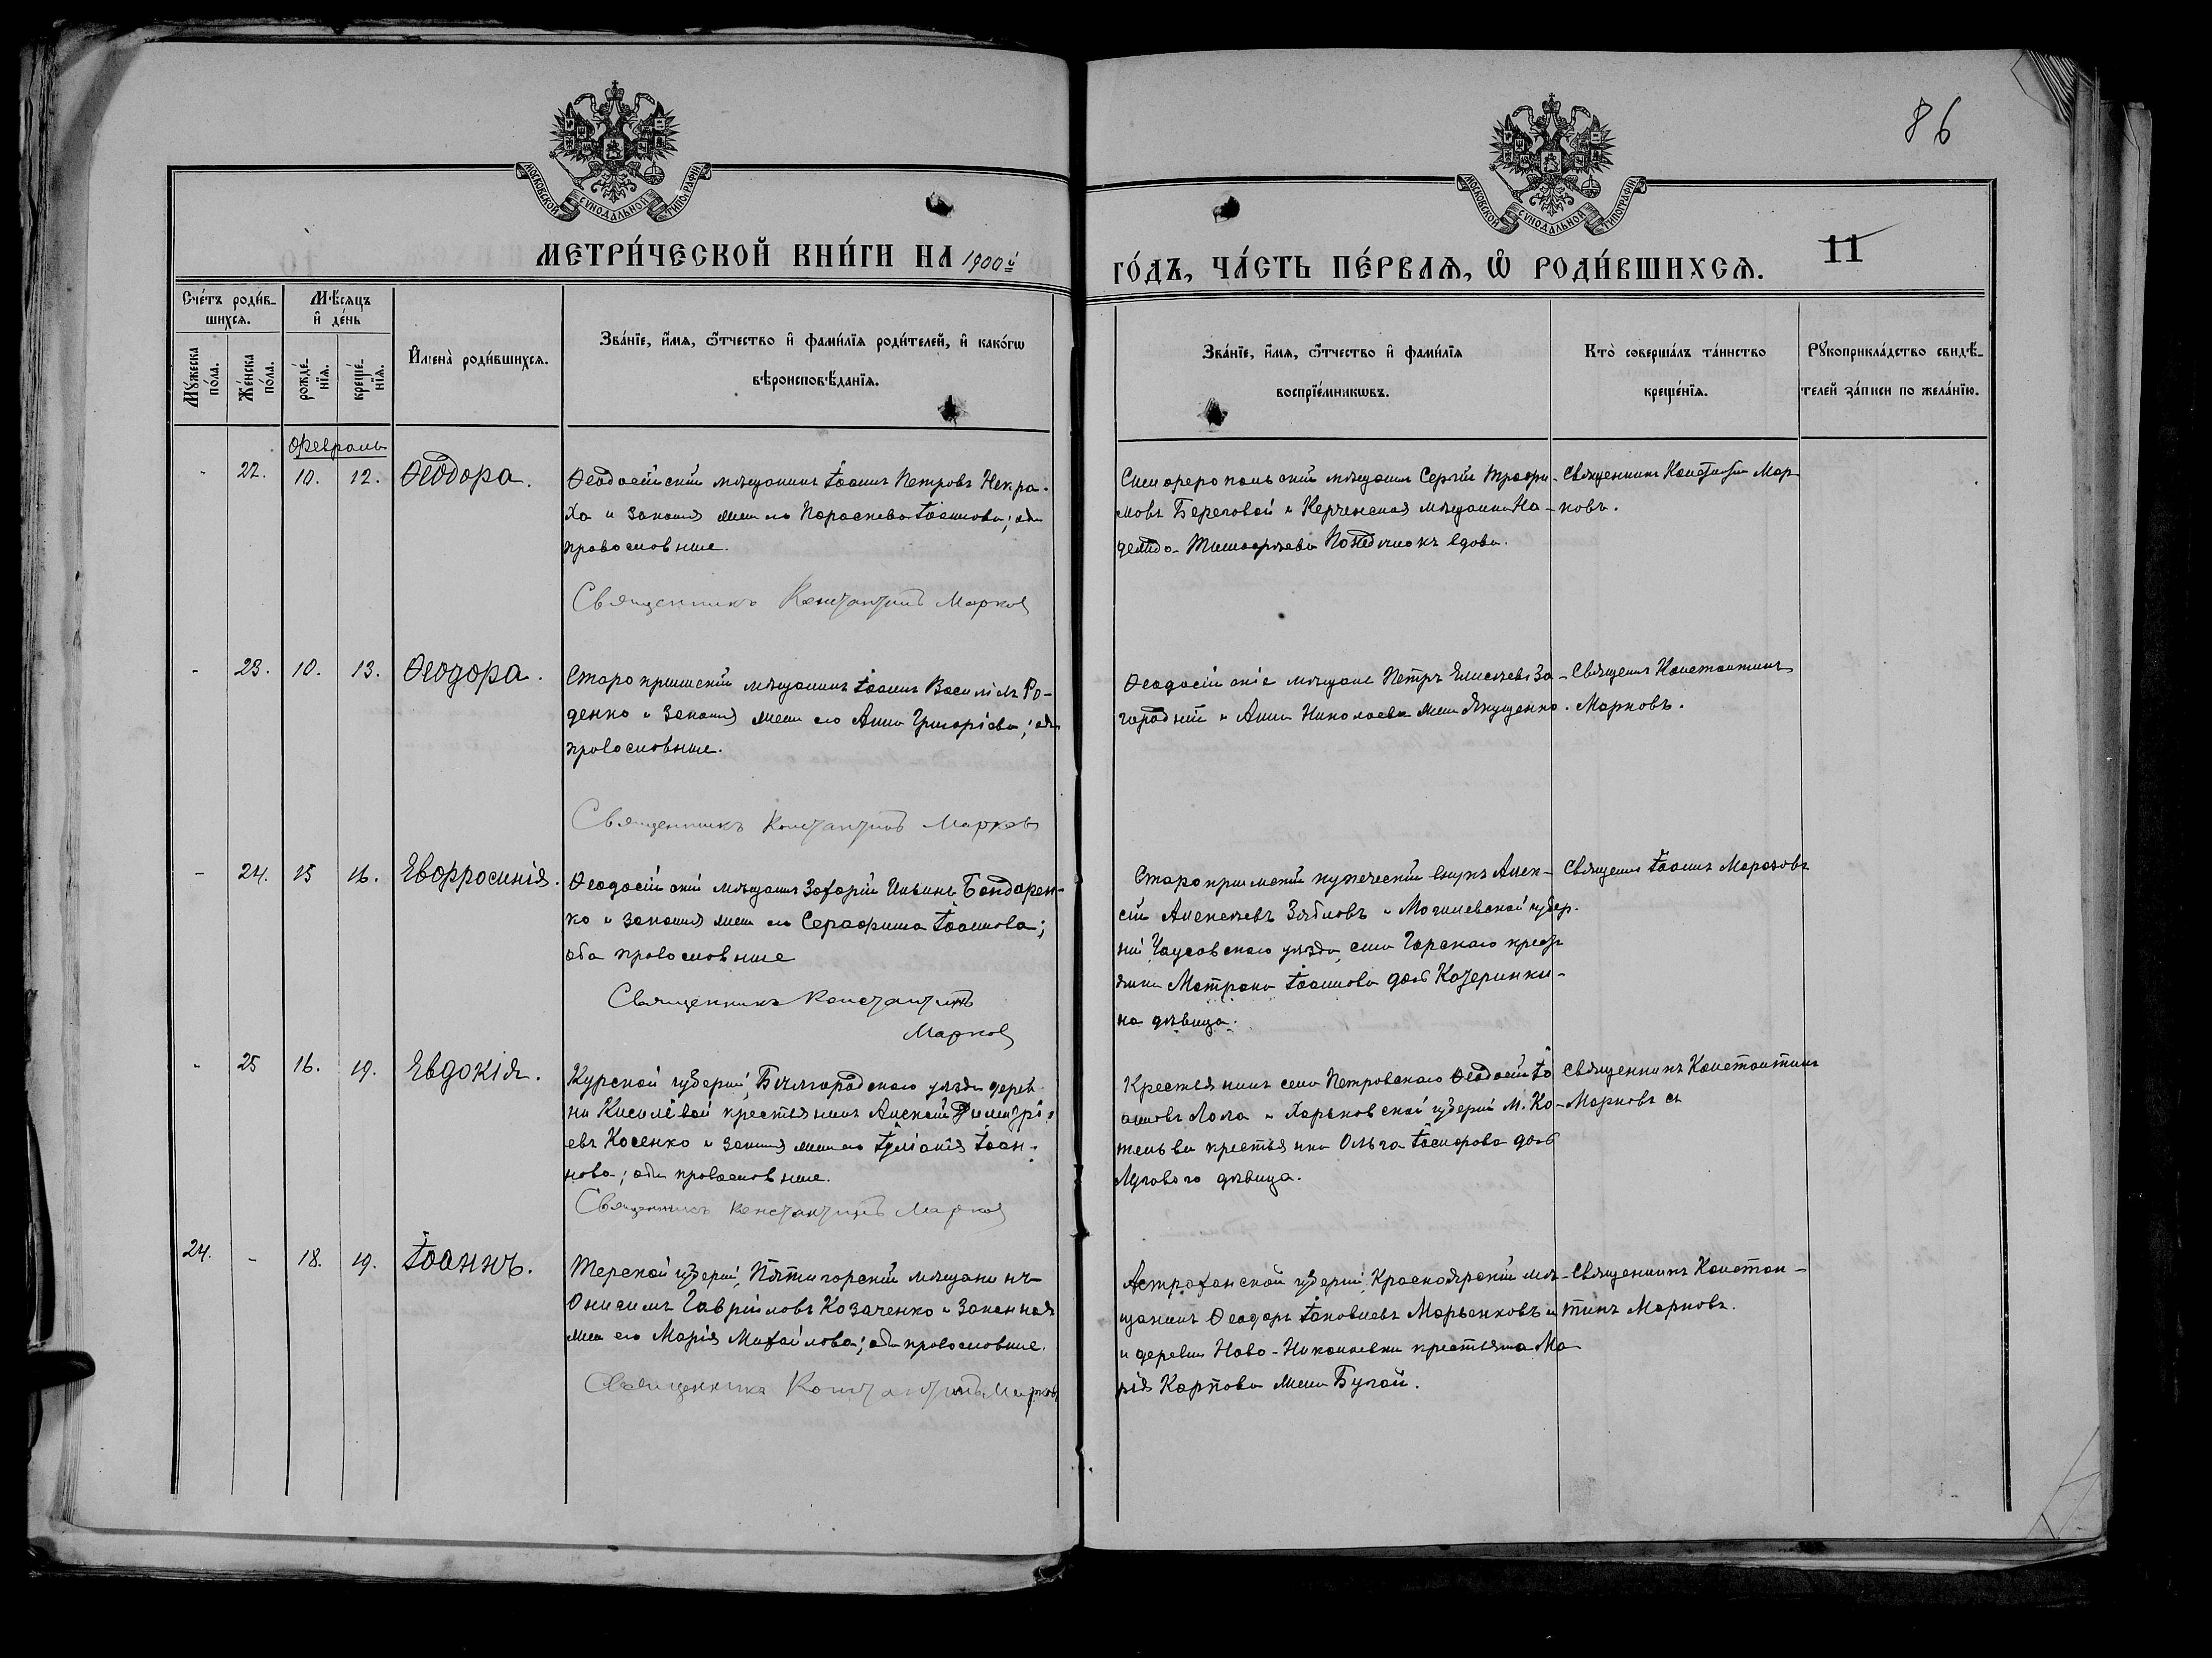 86
МОСКОВСКОЙ СѴНОДАЛЬНОЙ ТИПОГРАФІИ
МОСКОВСКОЙ СѴНОДАЛЬНОЙ ТИПОГРАФІИ
МЕТРИ́ЧЕСКОЙ КНИ́ГИ НА 1900й
ГО́ДЪ, ЧА́СТЬ ПЕ́РВАѦ, Ѡ РОДИ́ВШИХСѦ.
11
Сче́тъ роди́в-
шихсѧ.
Мѣ́сѧцъ
и҆ де́нь
Мꙋ́жеска
по́ла.
Же́нска
по́ла.
рожде́-
нїѧ.
креще́-
нїѧ.
И҆мена̀ роди́вшихсѧ.
Зва́нїе, и҆́мѧ, ѻ҆́тчество и҆ фами́лїѧ роди́телей, и҆ како́гѡ
вѣроисповѣ́данїѧ.
Зва́нїе, и҆́мѧ, ѻ҆́тчество и҆ фами́лїѧ
воспрїе́мникѡвъ.
Кто̀ соверша́лъ та́инство
креще́нїѧ.
Рꙋкоприкла́дство свидѣ́-
телей за́писи по жела́нїю.
Февраль
- 22. 10. 12. Ѳеодора.
Ѳеодосійскій мѣщанинъ Іоаннъ Петровъ Некра-
ха и законная жена его Параскева Іоаннова; оба
православные.
Священникъ Константинъ Марков
Симферопольскій мѣщанин Сергій Трофи-
мовъ Береговой и Керченская мѣщанка На-
дежда Тимофѣева вдова.
Священникъ Константин Мар-
ковъ.
- 23. 10. 13. Ѳеодора.
Старокрымскій мѣщанинъ Іоаннъ Васильевъ Ро-
денко и законная жена его Анна Григоріева; оба
православные.
Священникъ Константинъ Марковъ
Ѳеодосійскіе мѣщане Петръ Елисѣевъ За-
городній и Анна Николаева жена Якущенко.
Священ. Константинъ
Марковъ.
- 24. 15 16. Евфросинія.
Ѳеодосійскій мѣщанинъ Захарій Ильинъ Бондарен-
ко и законная жена его Серафима Іоаннова;
оба православные
Священникъ Константинъ
Марков
Старокрымскій купеческій внукъ Алек-
сій Алексѣевъ Зябловъ и Могилевской губер-
ніи Чаусовскаго уѣзда, села Горскаго крестья-
янка Матрона Іоаннова дочь Козеринки-
на дѣвица.
Священ. Іоаннъ Морозовъ
- 25 16. 19. Евдокія.
Курской губерніи, Бѣлгородскаго уѣзда дерев-
ни Киселёвой крестьянинъ Алексій Димитрі-
евъ Косенко и законная жена его Іуліанія Іоан-
нова; оба православные.
Священникъ Константинъ Марков
Крестьянинъ села Петровскаго Ѳеодосій Іо
анновъ Лола и Харьковской губерніи м. Ко-
тельвы крестьянка Ольга Іосифова дочь
Лугового дѣвица.
Священникъ Константинъ
Марковъ
24. - 18. 19. Іоаннъ.
Терской губерніи, Пятигорскій мѣщанинъ
Онисимъ Гавріиловъ Козаченко и законная
жена его Марія Михайлова; оба православные.
Священникъ Константинъ Марков
Астраханской губерніи, Красноярскій мѣ-
щанинъ Ѳеодоръ Іаковлевъ Марьенковъ и
и деревни Ново-Николаевки крестьянка Ма
рія Карпова жена Бугай.
Священникъ Констан-
тинъ Марковъ.